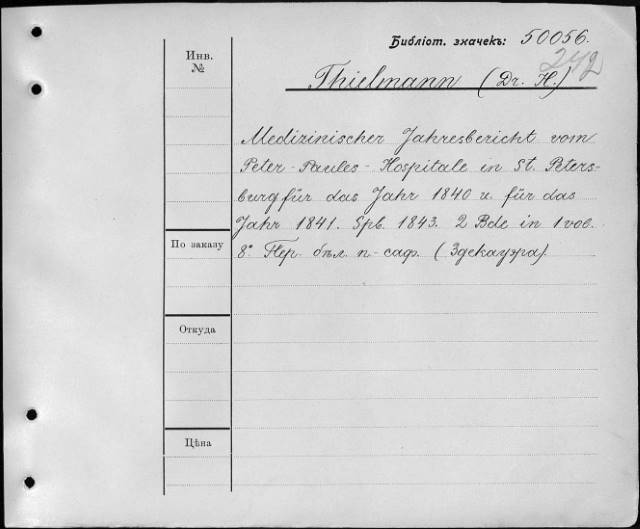 Библіот. значекъ: 50056.
242
Инв.
№
Thielmann (Dr. H.)
Medizinischer Jahresbericht vom
Peter-Paules-Hospitale in St. Peters-
burg für das Jahr 1840 u. für das
Jahr 1841. Spb. 1843. 2 Bde in 1 vol.
8° Пер. бѣл. п-саф. (Здекауэра).
По заказу
Откуда
Цѣна